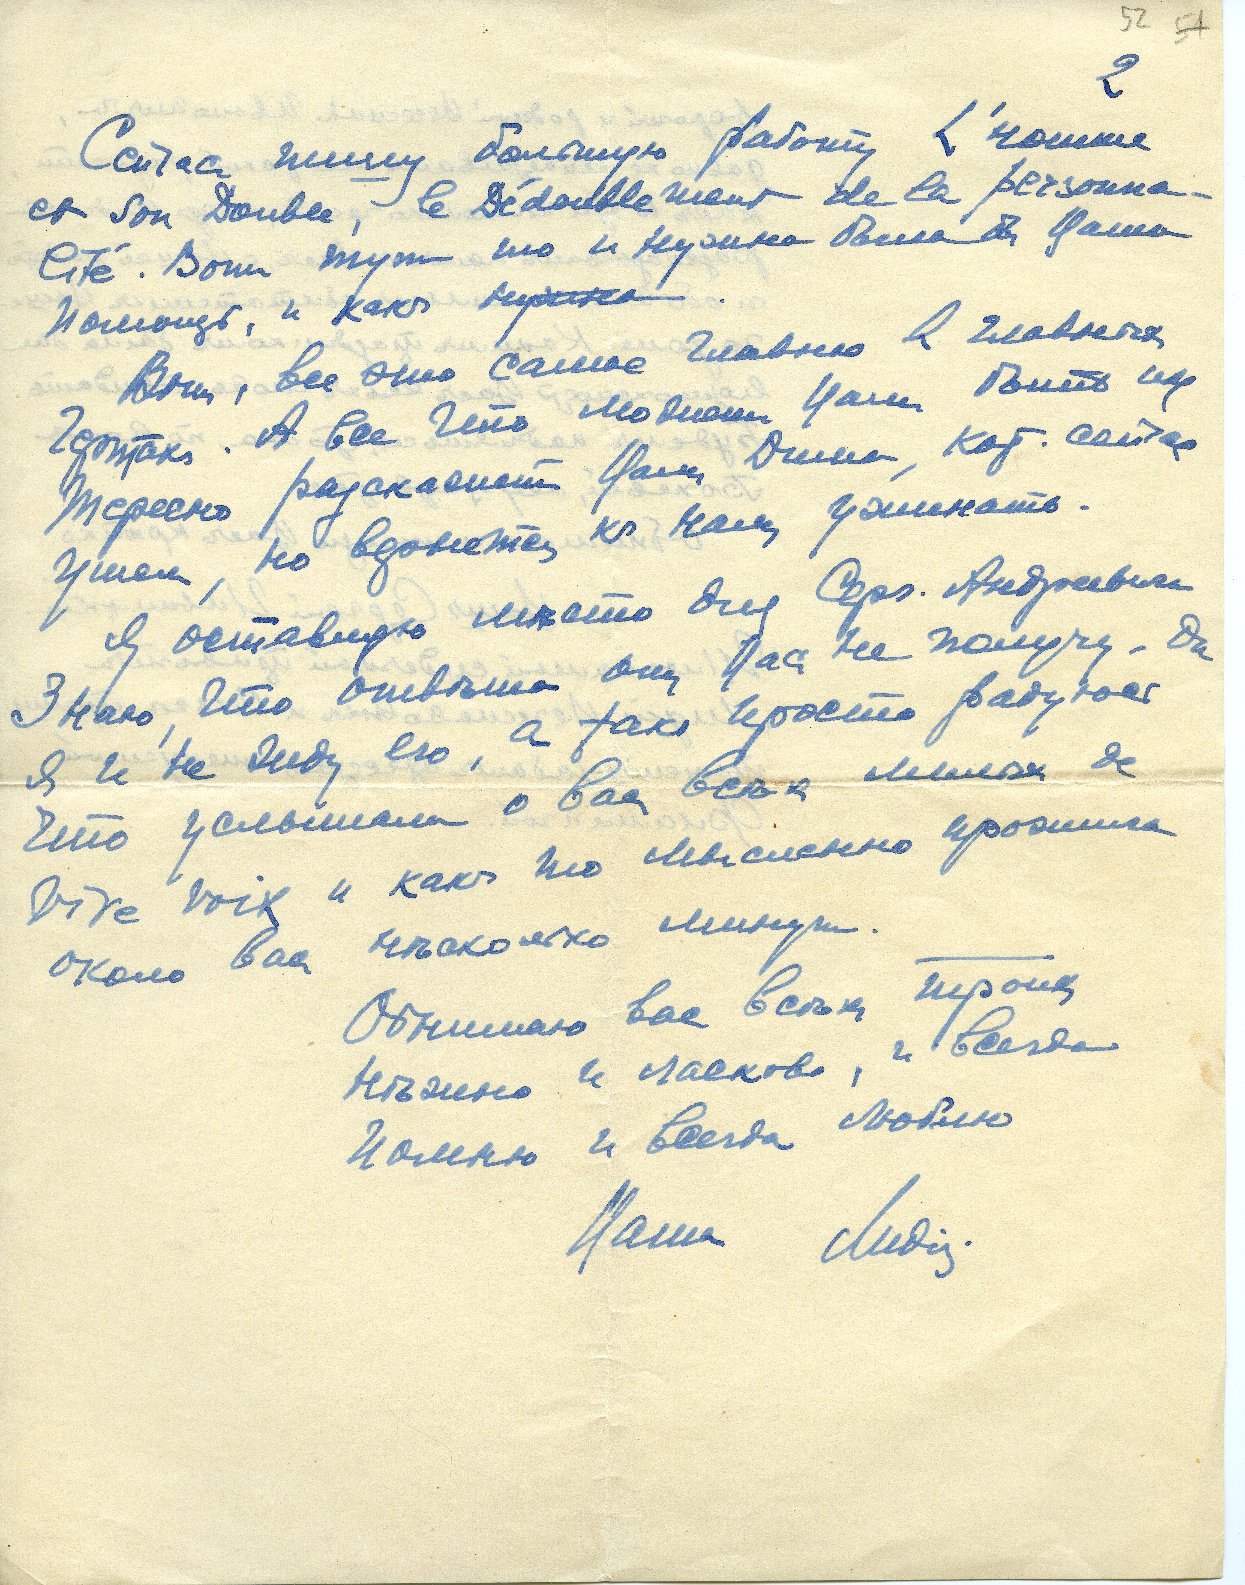 52 51
2
Сейчас пишу большую работу L'homme
et son Double, le Dédoublement de la personna-
lité. Вотъ тутъ то и нужна была бы Ваша
помощь, и какъ нужна.
Вотъ, все это самое главное в главныхъ
чертахъ. А все что можетъ Вамъ быть ин
тересно разскажетъ Вамъ Дима, кот. сейчас
ушелъ, но вернется къ намъ ужинать.
Я оставляю мѣсто для Серг. Андреевича
Знаю, что отвѣта отъ Васъ не получу, да
я и не жду его, а такъ просто радуюсь
что услышала о васъ всѣхъ милыхъ de
vive voix и какъ то мысленно прожила
около васъ нѣсколько минутъ.
Обнимаю васъ всѣхъ троихъ
нѣжно и ласково, и всегда
помню и всегда люблю
Ваша Лидія.